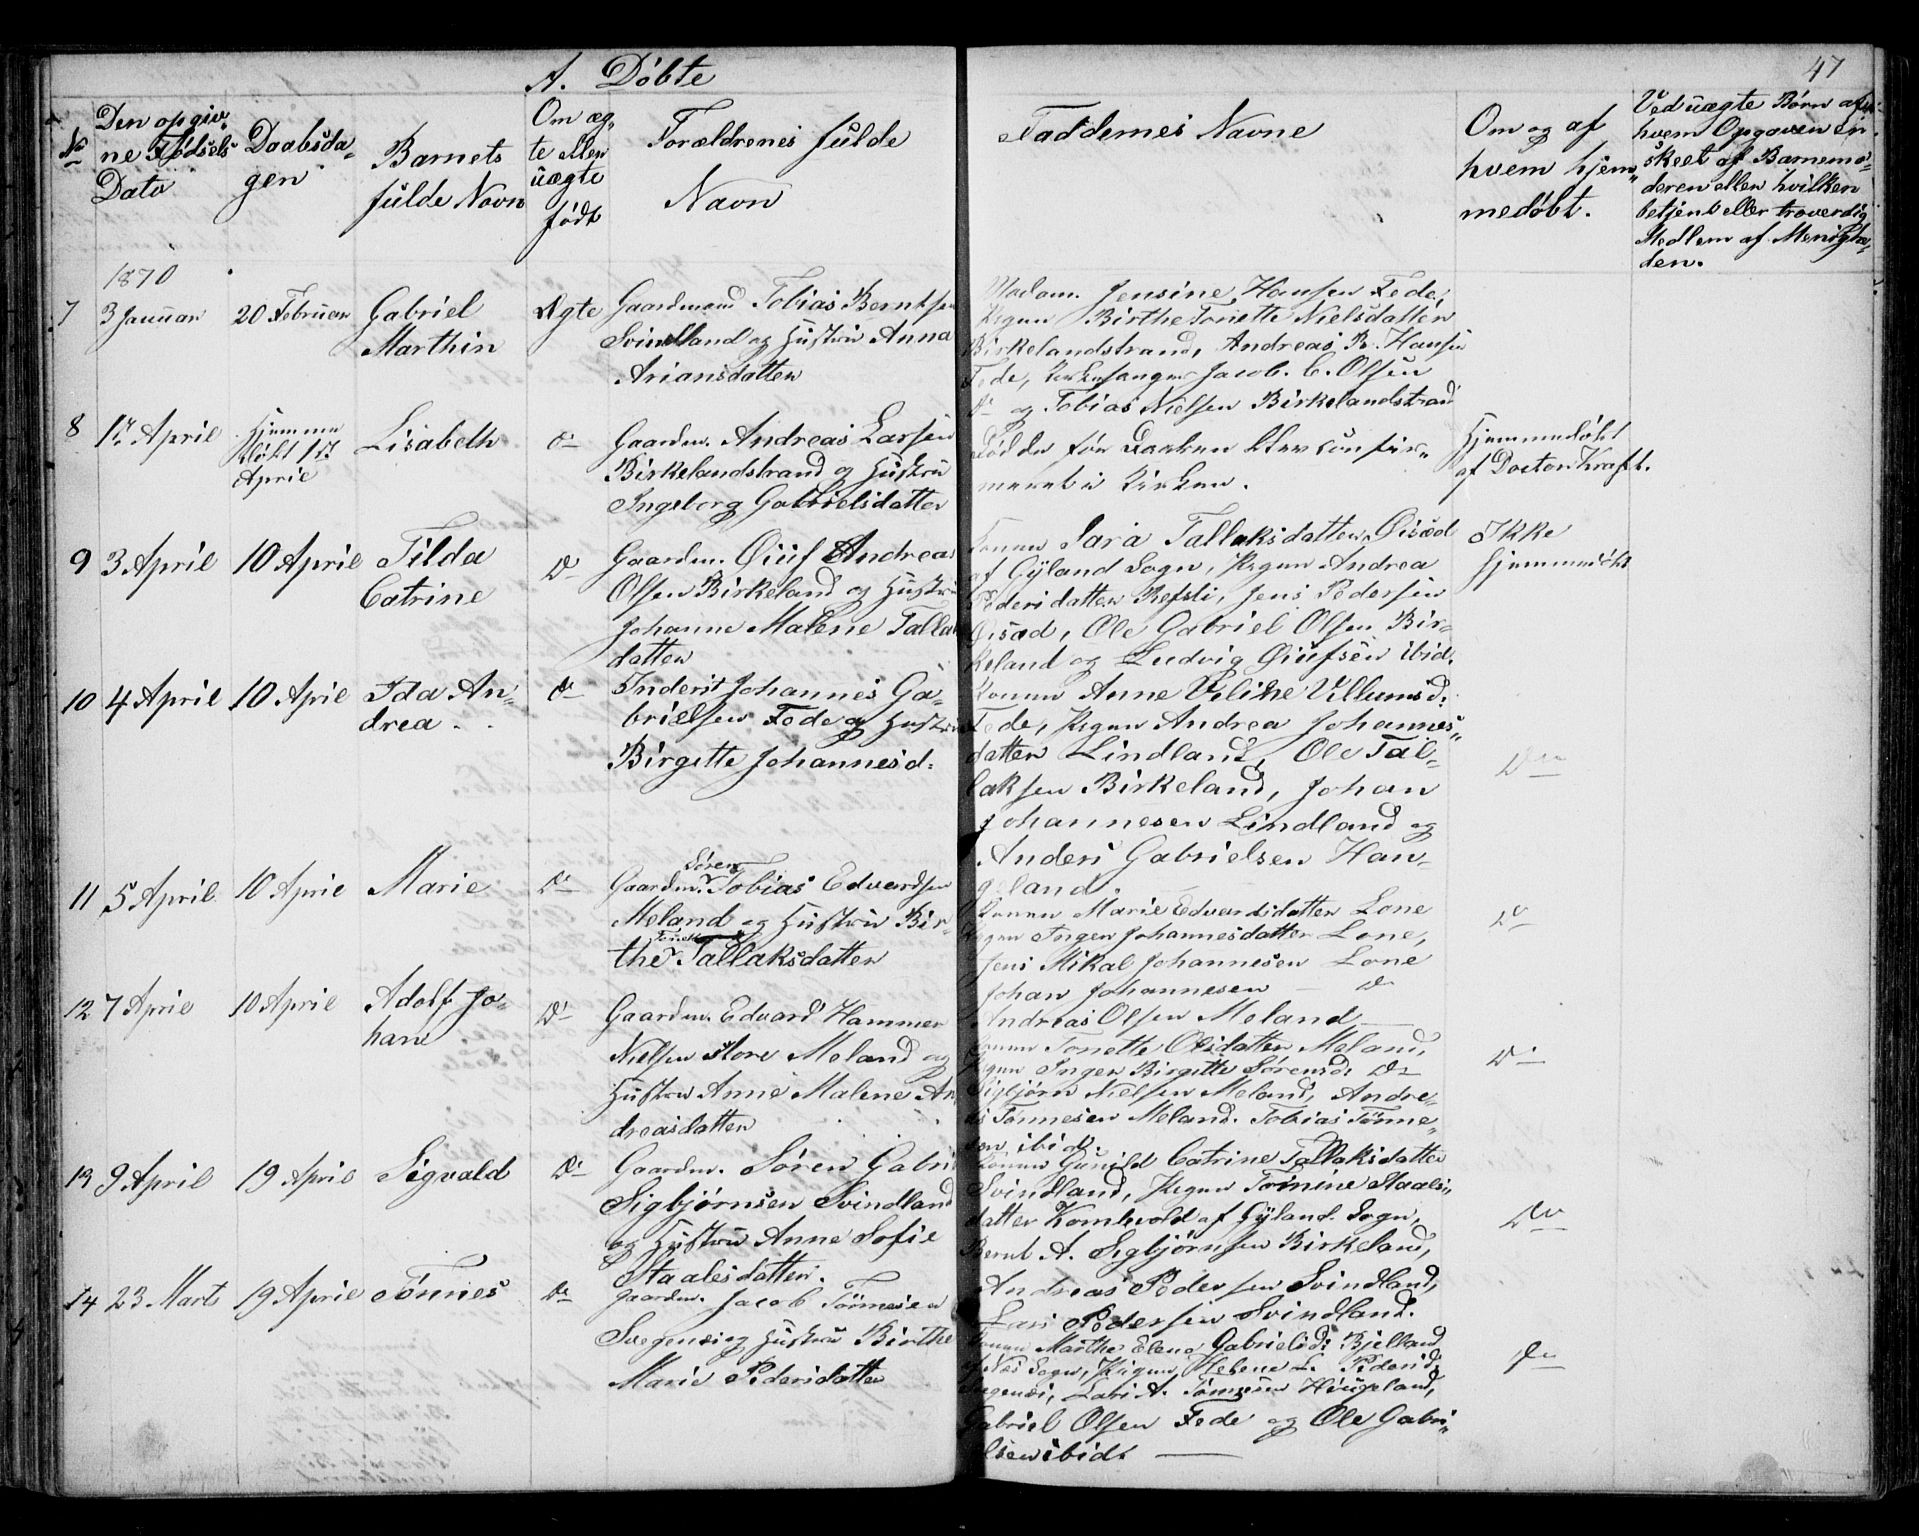 A. Døbte
47
No
Den opgiv-
ne Fødsels
Dato
Daabsda-
gen
Barnets
fulde Navn
Om æg-
te eller
uægte
født
Forældrenes fulde
Navn
Faddernes Navne
Om og af
hvem hjem-
medøbt.
Ved uægte Børn af
hvem Opgaven er
skeet af Barnemo-
deren eller hvilken
betjent eller troverdig
Medlem af Menighe-
den.
1870
7
3 Januar
20 Februar
Gabriel
Marthin
Ægte
Gaardmand Tobias Berntsen
Svindland og Hustru Anna
Ariansdatter
Madam. Jensine Hansen Fede,
Pigen Birthe Tonette Nielsdatter
Birkelandstrand, Andreas B. Hansen
Fede, Kirkesanger Jacob. C. Olsen
Do og Tobias Nielsen Birkelandstrand
8
April
Hjemme
døbt
Aprie
Lisabeth
Do
Gaardm. Andreas Larsen
Birkelandstrand og Hustru
Ingeborg Gabrielsdatter
Døde før Daaben blev confir-
meret i Kirken.
Hjemmedøbt
af Doctor Kraft.
9
3 April
10 Aprie
Tilda
Catrine
Do
Gaardm. Øiuf Andreas
Olsen Birkeland og Hustru
Johanne Malene Talla
datter
Konen Sara Tallaksdatter Øisæd
af Gyland Sogn, Pigen Andrea
Pedersdatter Refsti, Jens Pedersen
Øisæd, Ole Gabriel Olsen Bir-
keland og Ludvig Øiufsen ibid.
Ikke
hjemmedøbt
10
4 April
10 Aprie
Ida An-
drea.
Do
Inderst Johannes Ga-
brielsen Fede og Hustru
Birgitte Johannesd:
Konen Anne Villumsd:
Fede, Pigen Andrea Johannes-
datter Lindland, Ole Tal-
laksen Birkeland, Johan
Johannesen Lindland og
Anders Gabrielsen Han-
geland.
Do
11
5 April
10 Aprie
Marie
Do
Søren
Gaardm. Tobias Edvardsen
Meland og Hustru Bir-
Tonette
the Tallaksdatter
Konen Marie Edvardsdatter Lone
Pigen Inger Johannesdatter Lone,
Jens Mikal Johannesen Lone
Johan Johannesen — Do
Andreas Olsen Meland —
Do
12
7 April
10 Aprie
Adolf Jo-
han
Do
Gaardm. Edvard Hammer
Nielsen store Meland og
Hustru Anne Malene An-
dreasdatter
Konen Tonette Olsdatter Meland,
Pigen Inger Birgitte Sørensd: Do
Sigbjørn Nielsen Meland, Andre-
as Tønnesen Meland. Tobias Tønne-
sen ibid.
Do
13
9 April
19 Aprie
Sigvald
Do
Gaardm. Søren Gabri
Sigbjørnsen Svindland
og Hustru Anne Sofie
Staalesdatter.
Konen Gunild Catrine Tallaksdatter
Svindland, Pigen Tomine Staals-
datter Kornhvold af Gyland. Sogn,
Bernt A. Sigbjørnsen Birkeland,
Andreas Pedersen Svindland,
Lars Pedersen Svindland.
Do
14
23 Marts
19 Aprie
Tønnes
Do
Gaardm. Jacob Tønnesen
Svegenes og Hustru Birthe
Marie Pedersdatter
Konen Marthe Elene Gabrielsd: Bjelland
af Nes Sogn, Pigen Helene L. Pedersd:
Svegenes, Lars A. Tønnesen Haugeland,
Gabriel Olsen Fede og Ole Gabri-
elsen ibidt —
Do